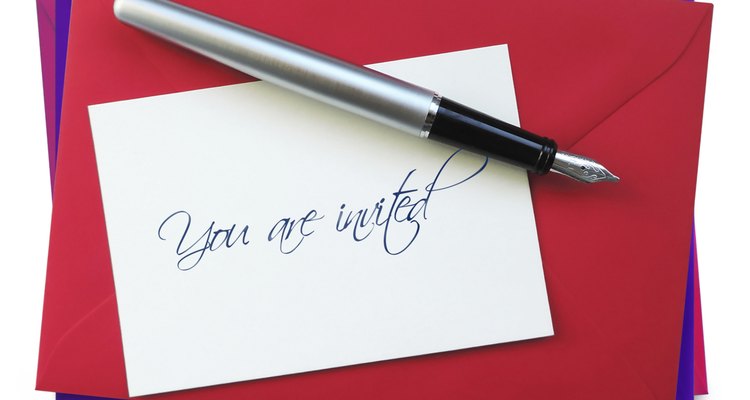 You are invited